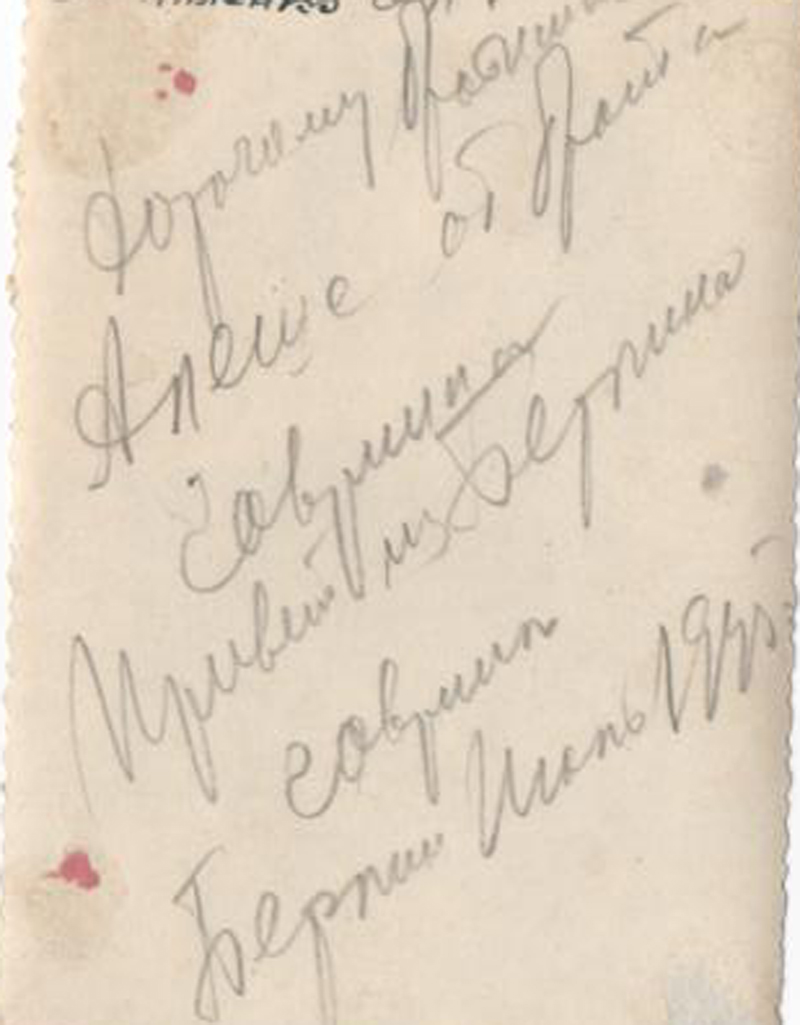 дорогому братишке
Алеше от брата
Гаврила
Привет из Берлина
Гаврил
Берлин Июль 1945